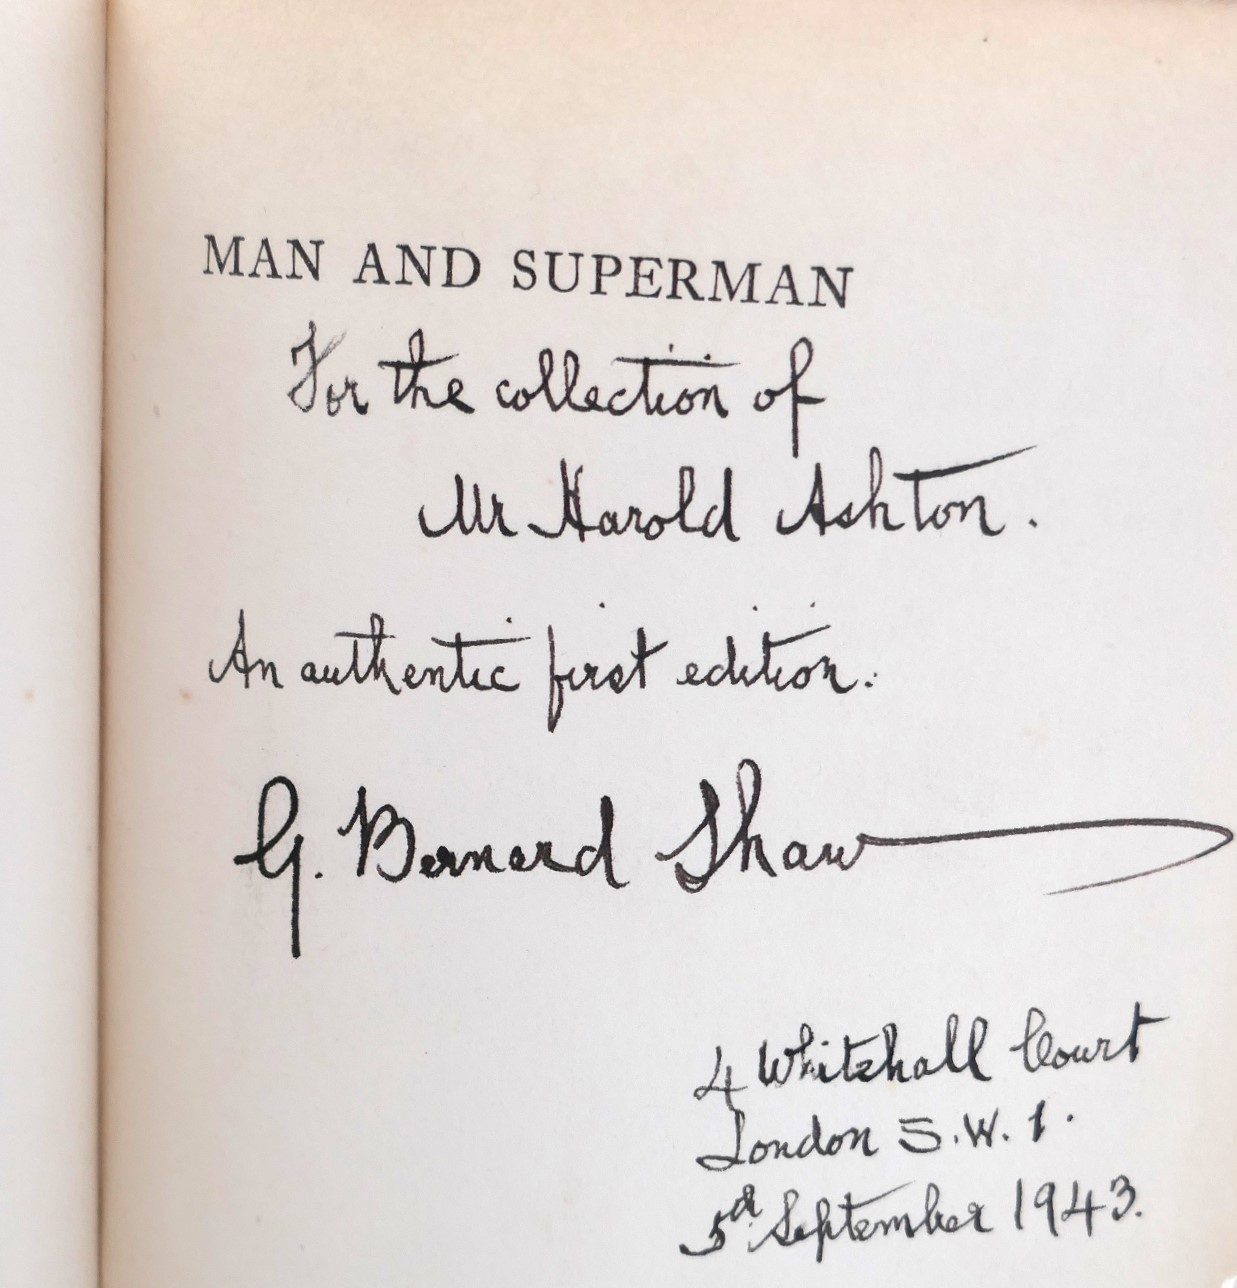 MAN AND SUPERMAN
For the collection of
Mr Harold Ashton.
An authentic first edition.
G. Bernard Shaw
4 Whitehall Court
London S.W. 1.
September 1943.